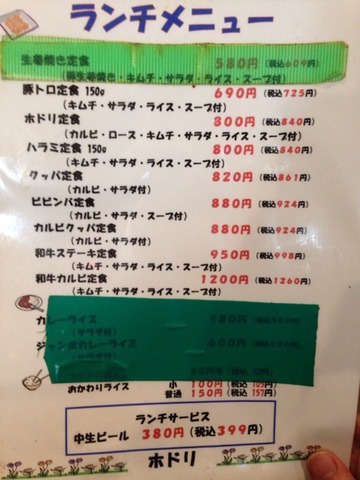 ランチメニュー
生姜焼き定食 580円 (税込609円)
(豚生姜焼き・キムチ・サラダ・ライス・スープ付)
豚トロ定食 150g 690円 (税込725円)
(キムチ・サラダ・ライス・スープ付)
ホドリ定食 800円 (税込840円)
(カルビ・ロース・キムチ・サラダ・ライス・スープ付)
ハラミ定食 150g 800円 (税込840円)
(キムチ・サラダ・ライス・スープ付)
クッパ定食 820円 (税込861円)
(カルビ・サラダ付)
ビビンバ定食 880円 (税込924円)
(カルビ・サラダ・スープ付)
カルビクッパ定食 880円 (税込924円)
(サラダ付)
和牛ステーキ定食 950円 (税込998円)
(キムチ・サラダ・ライス・スープ付)
和牛カルビ定食 1200円 (税込1260円)
(キムチ・サラダ・ライス・スープ付)
カレーライス 480円
(サラダ付)
ジャンボカレーライス 600円
(サラダ付)
おかわりライス 小 100円 (税込105円)
普通 150円 (税込157円)
ランチサービス
中生ビール 380円 (税込399円)
ホドリ